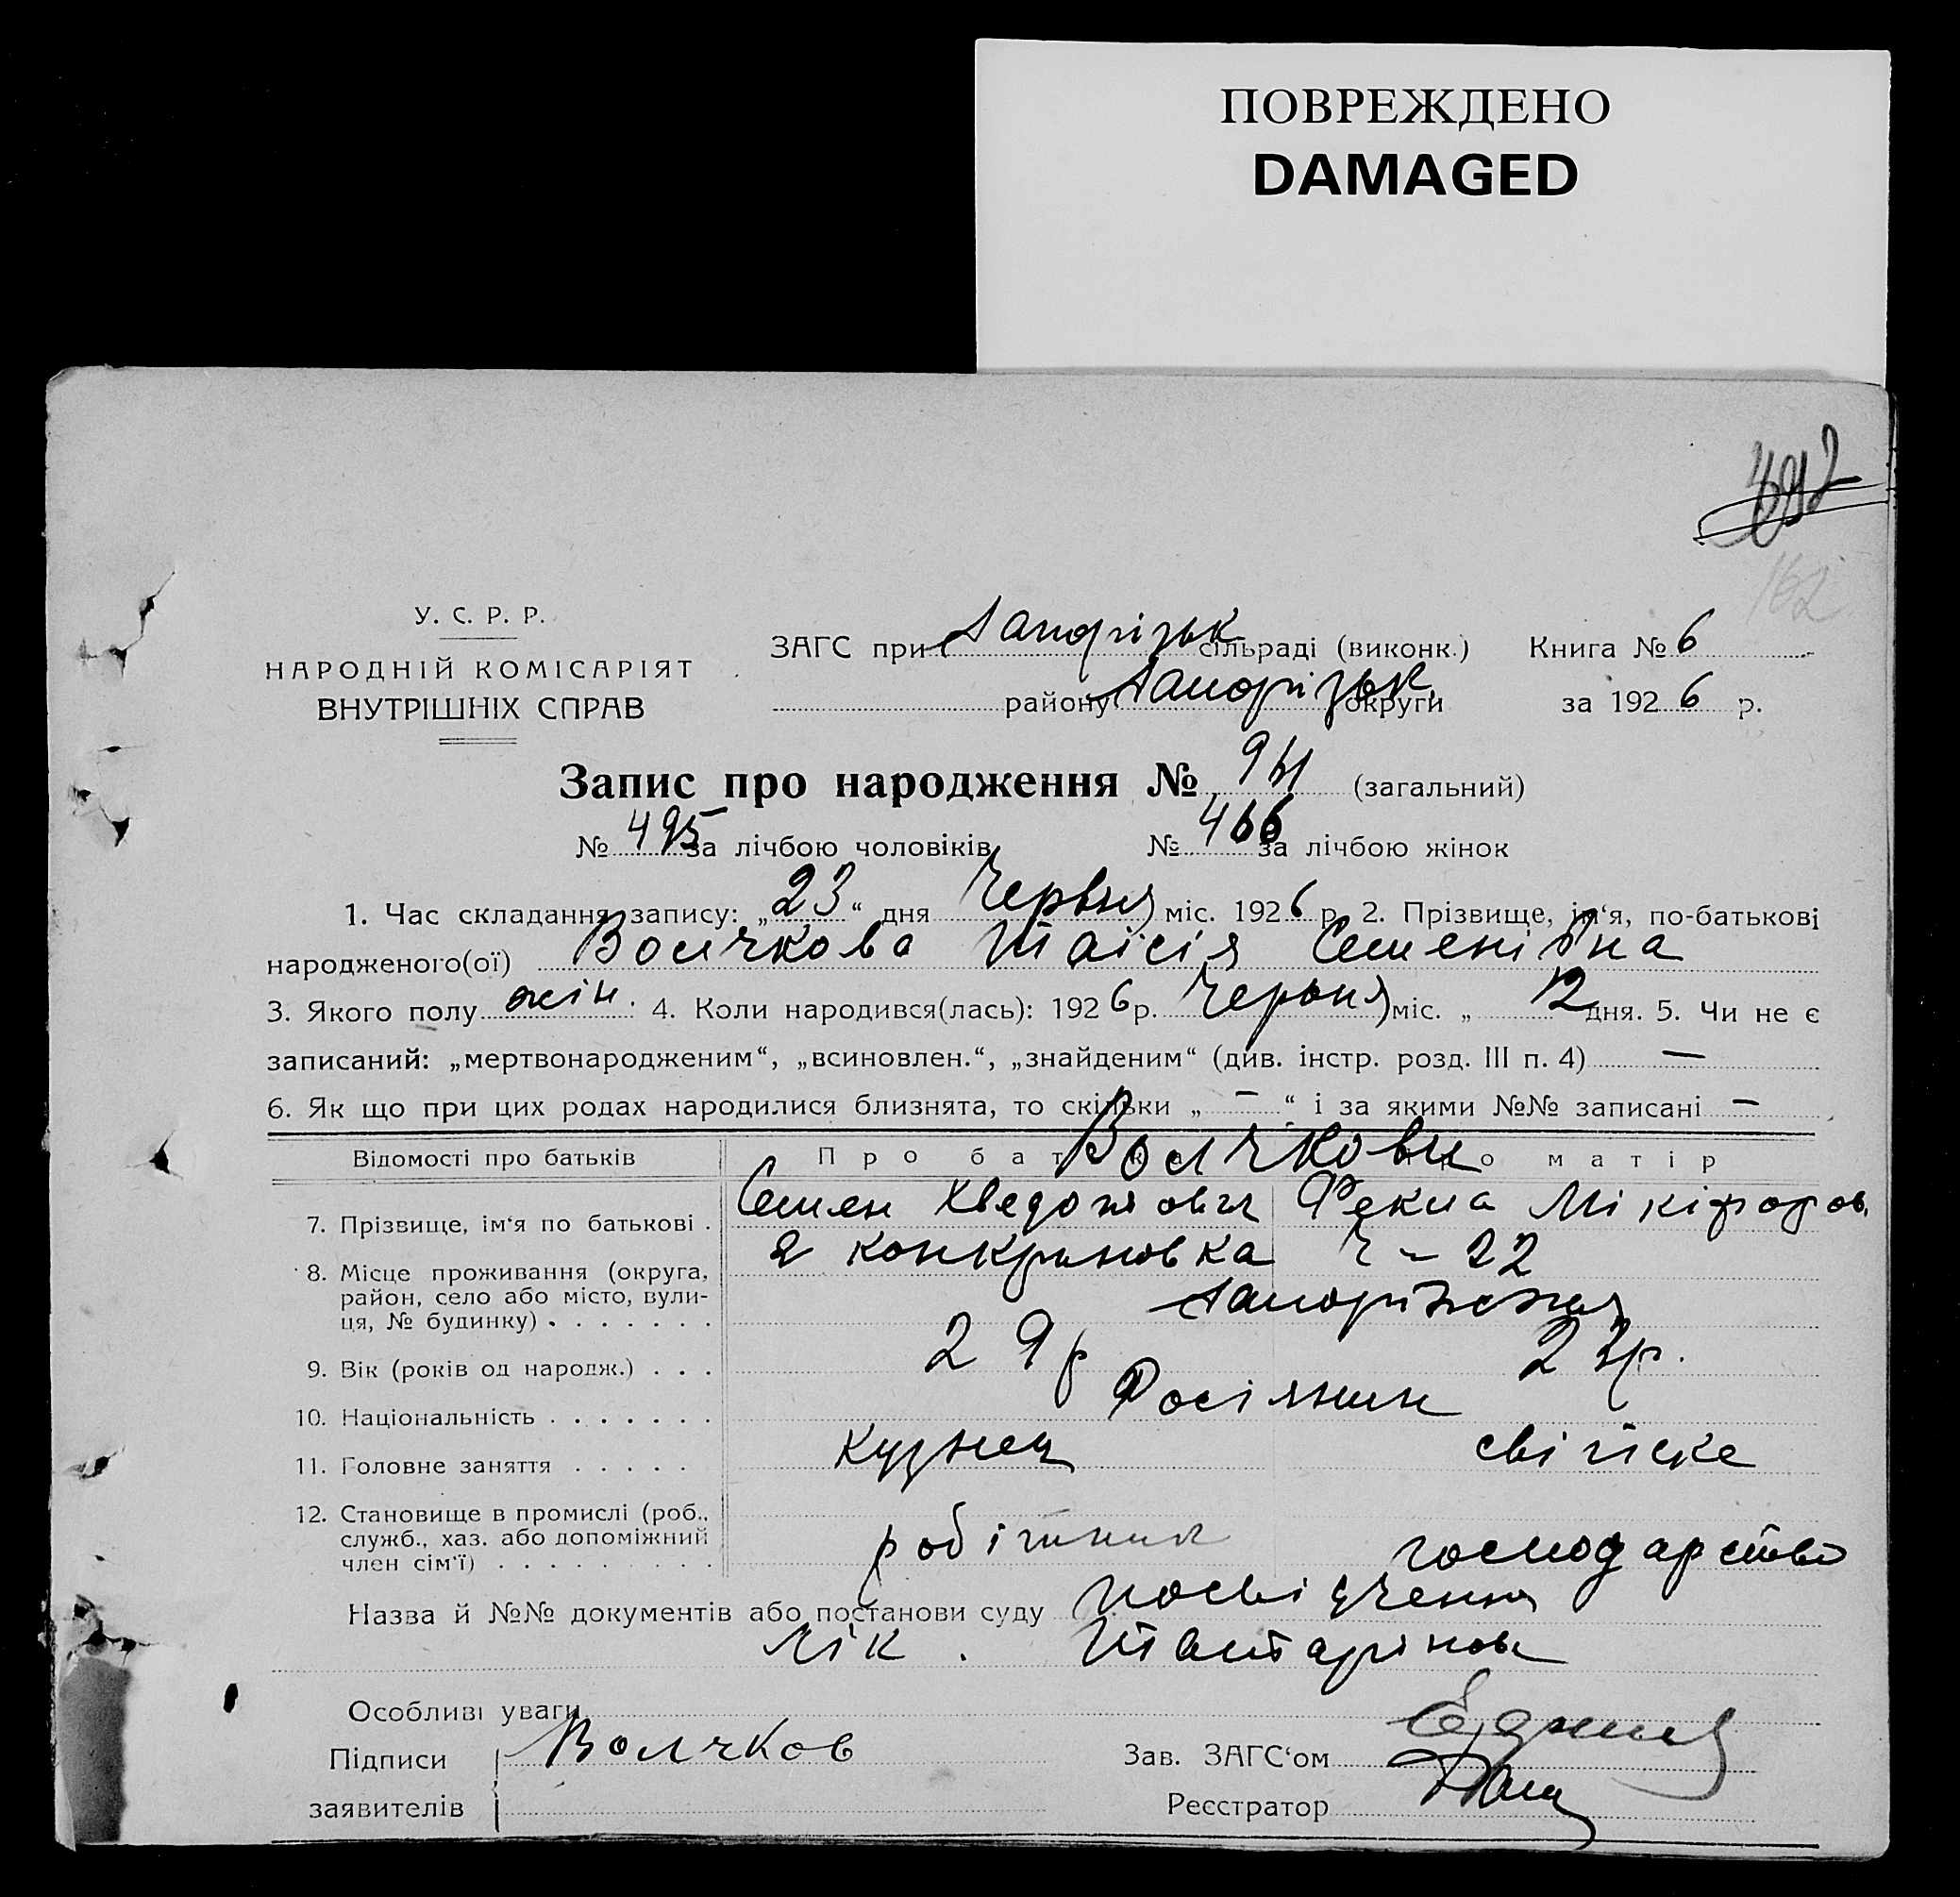 ПОВРЕЖДЕНО
DAMAGED
162
У. С. Р. Р.
НАРОДНІЙ КОМІСАРІЯТ
ВНУТРІШНІХ СПРАВ
ЗАГС при Запорізьк сільраді (виконк.) Книга № 6
району Запорізьк. округи за 1926 р.
Запис про народження № 961 (загальний)
№ 495 за лічбою чоловіків № 466 за лічбою жінок
1. Час складання запису: „23“ дня Червня міс. 1926 р. 2. Прізвище, ім‘я, по-батькові
народженого(ої) Волчкова Таісія Семенівна
3. Якого полу жін. 4. Коли народився(лась): 1926 р. Червня міс. „ 12 дня. 5. Чи не є
записаний: „мертвонародженим“, „всиновлен.“, „знайденим“ (див. інстр. розд. III п. 4) —
6. Як що при цих родах народилися близнята, то скільки „ — “ і за якими №№ записані —
Відомості про батьків Про бат Волчкови про матір
7. Прізвище, ім‘я по батькові . Семен Хведотович Фекла Мікіфоров.
8. Місце проживання (округа, 22
район, село або місто, вули-
ця, № будинку) . . . . . . . Запоріжжя
9. Вік (років од народж.) . . . 29 р 23р.
10. Національність . . . . . . . Росіянин
11. Головне заняття . . . . . кузнец свійске
12. Становище в промислі (роб.,
служб., хаз. або допоміжний
член сім‘ї) . . . . . . . . . робітник господарство
Назва й №№ документів або постанови суду посвідчення
лік. Татарінов
Особливі уваги
Підписи Волчков Зав. ЗАГС‘ом
заявителів Реєстратор